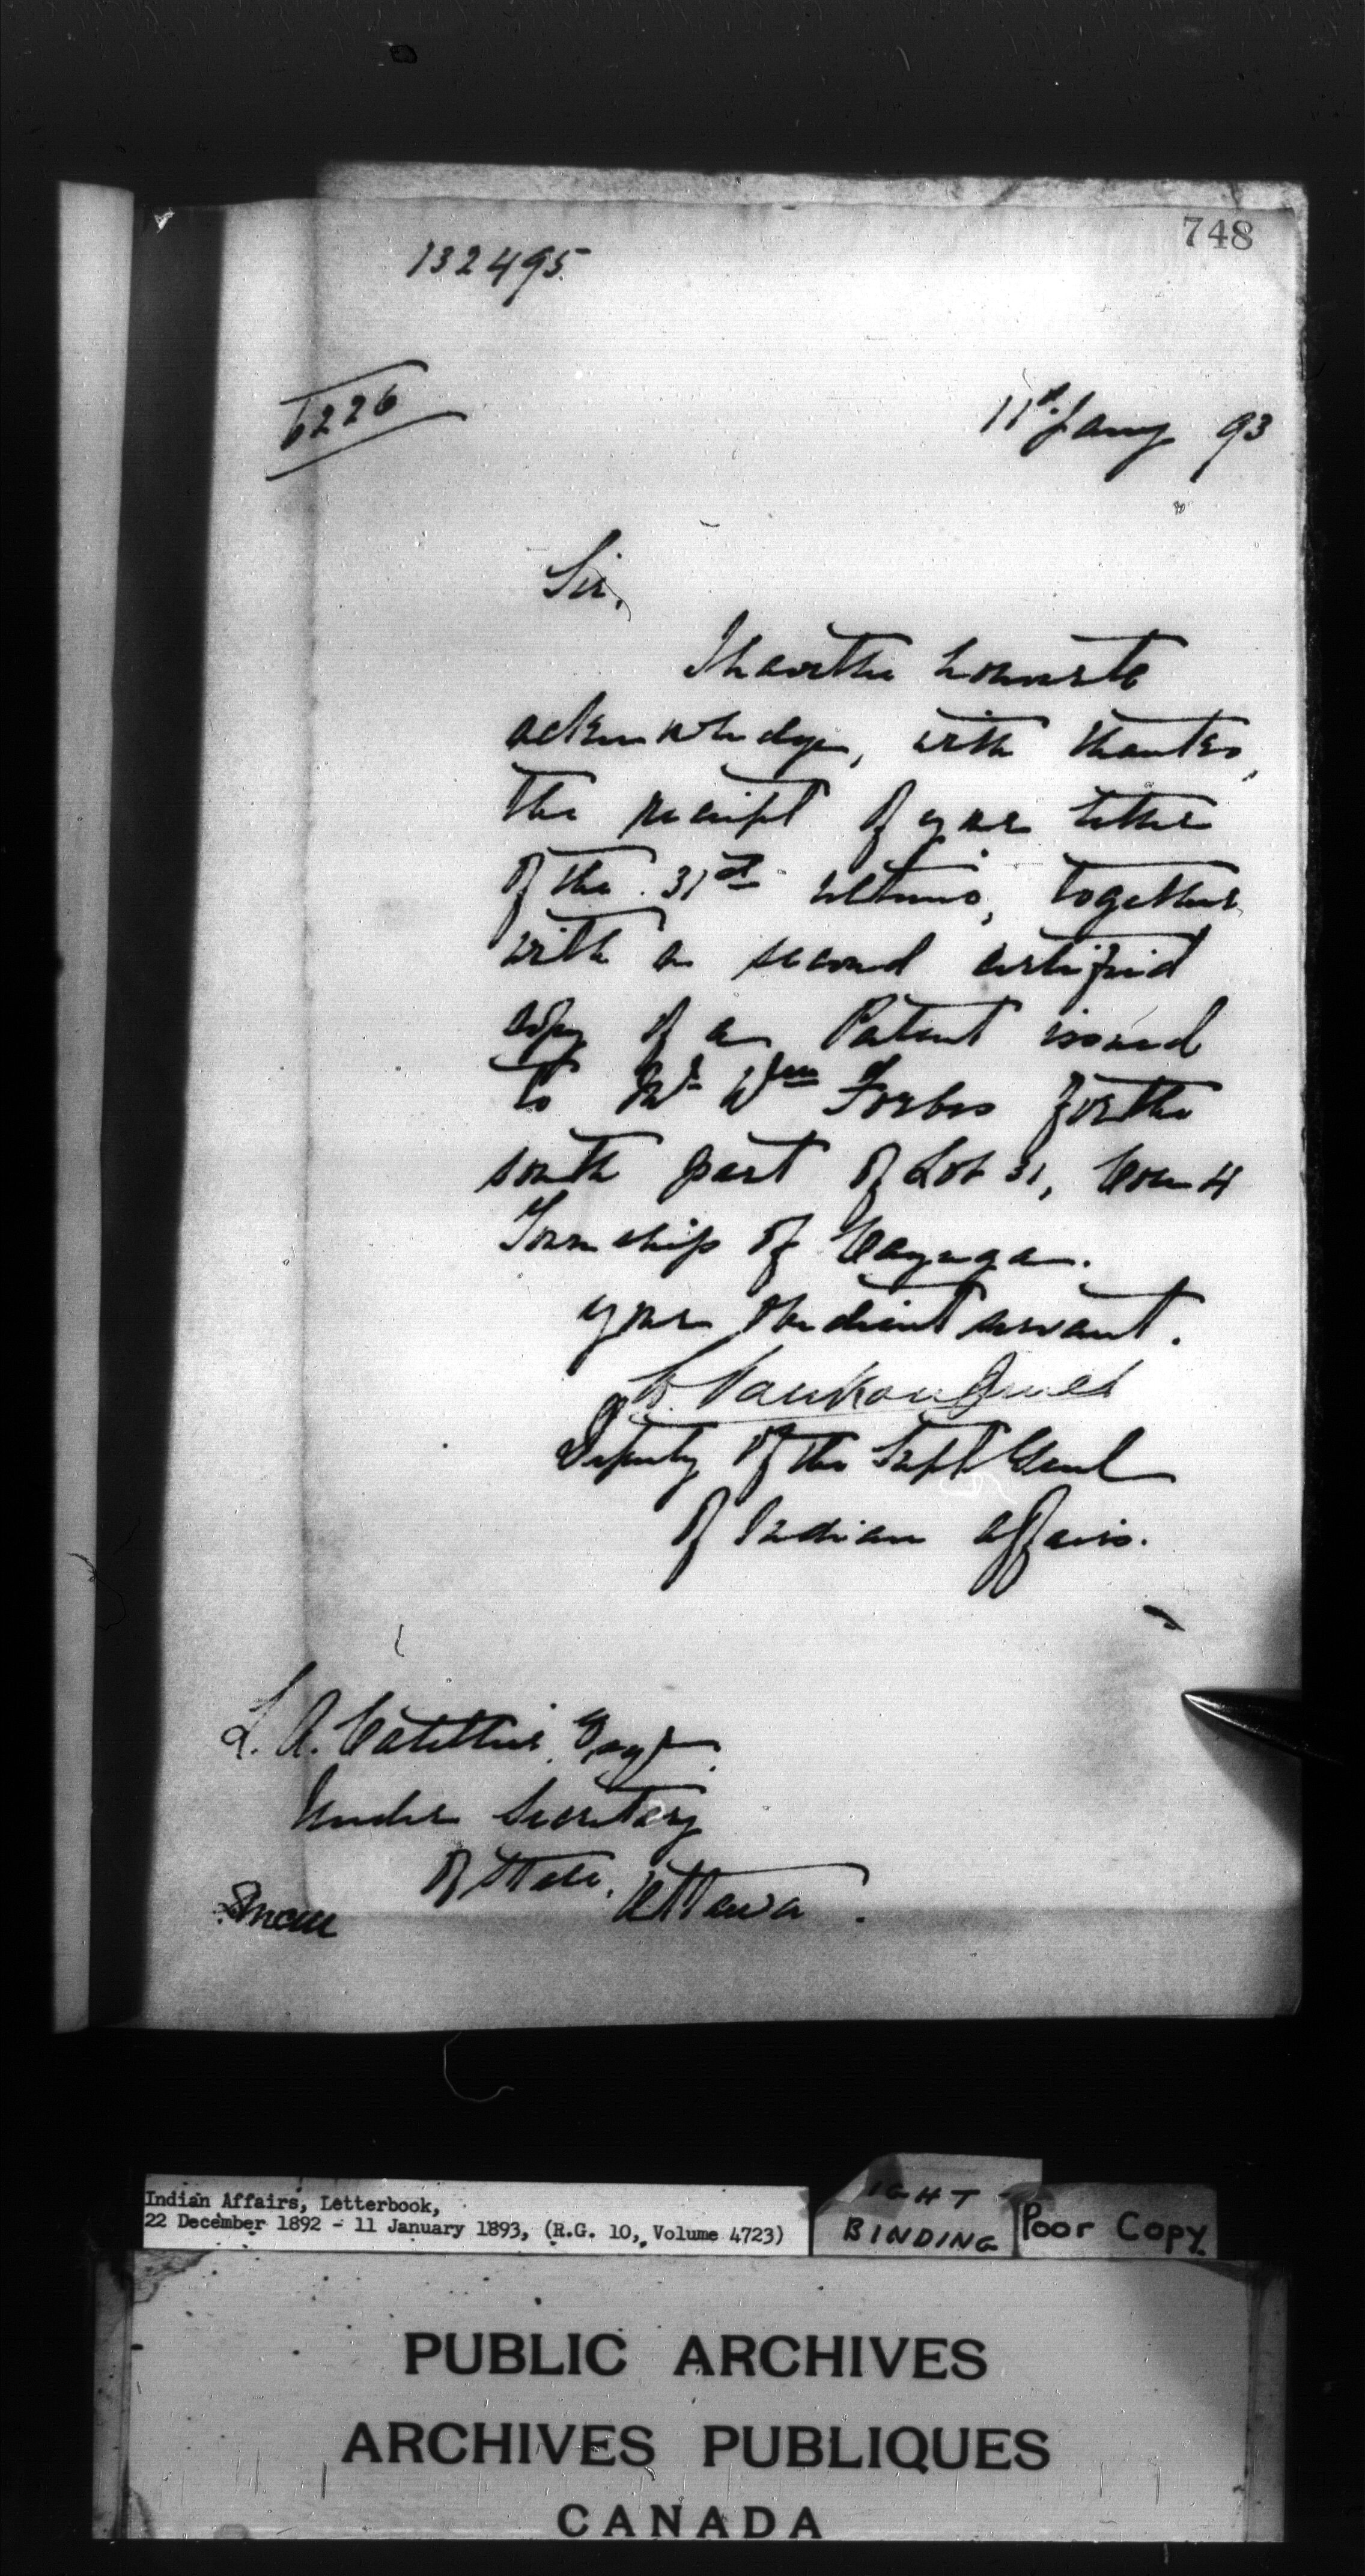 748
132495.
6226
11th Jany 93
Sir,
I have the honour to
acknowledge, with thanks,
the receipt of your letter
of the 31st ultimo, together
with a second certified
copy of a Patent issued
to Mr Wm Forbes for the
south part of Lot 31, Con 4
Township of Cayuga.
your obedient servant.
L. Vankoughnet
Deputy of the Supt Genl
of Indian affairs.
L. A. Catellier, Esqr.
Under Secretary
of State, Ottawa.
Indian Affairs, Letterbook,
22 December 1892 - 11 January 1893, (R.G. 10, Volume 4723)
IGHT
BINDING
Poor Copy.
PUBLIC ARCHIVES
ARCHIVES PUBLIQUES
CANADA